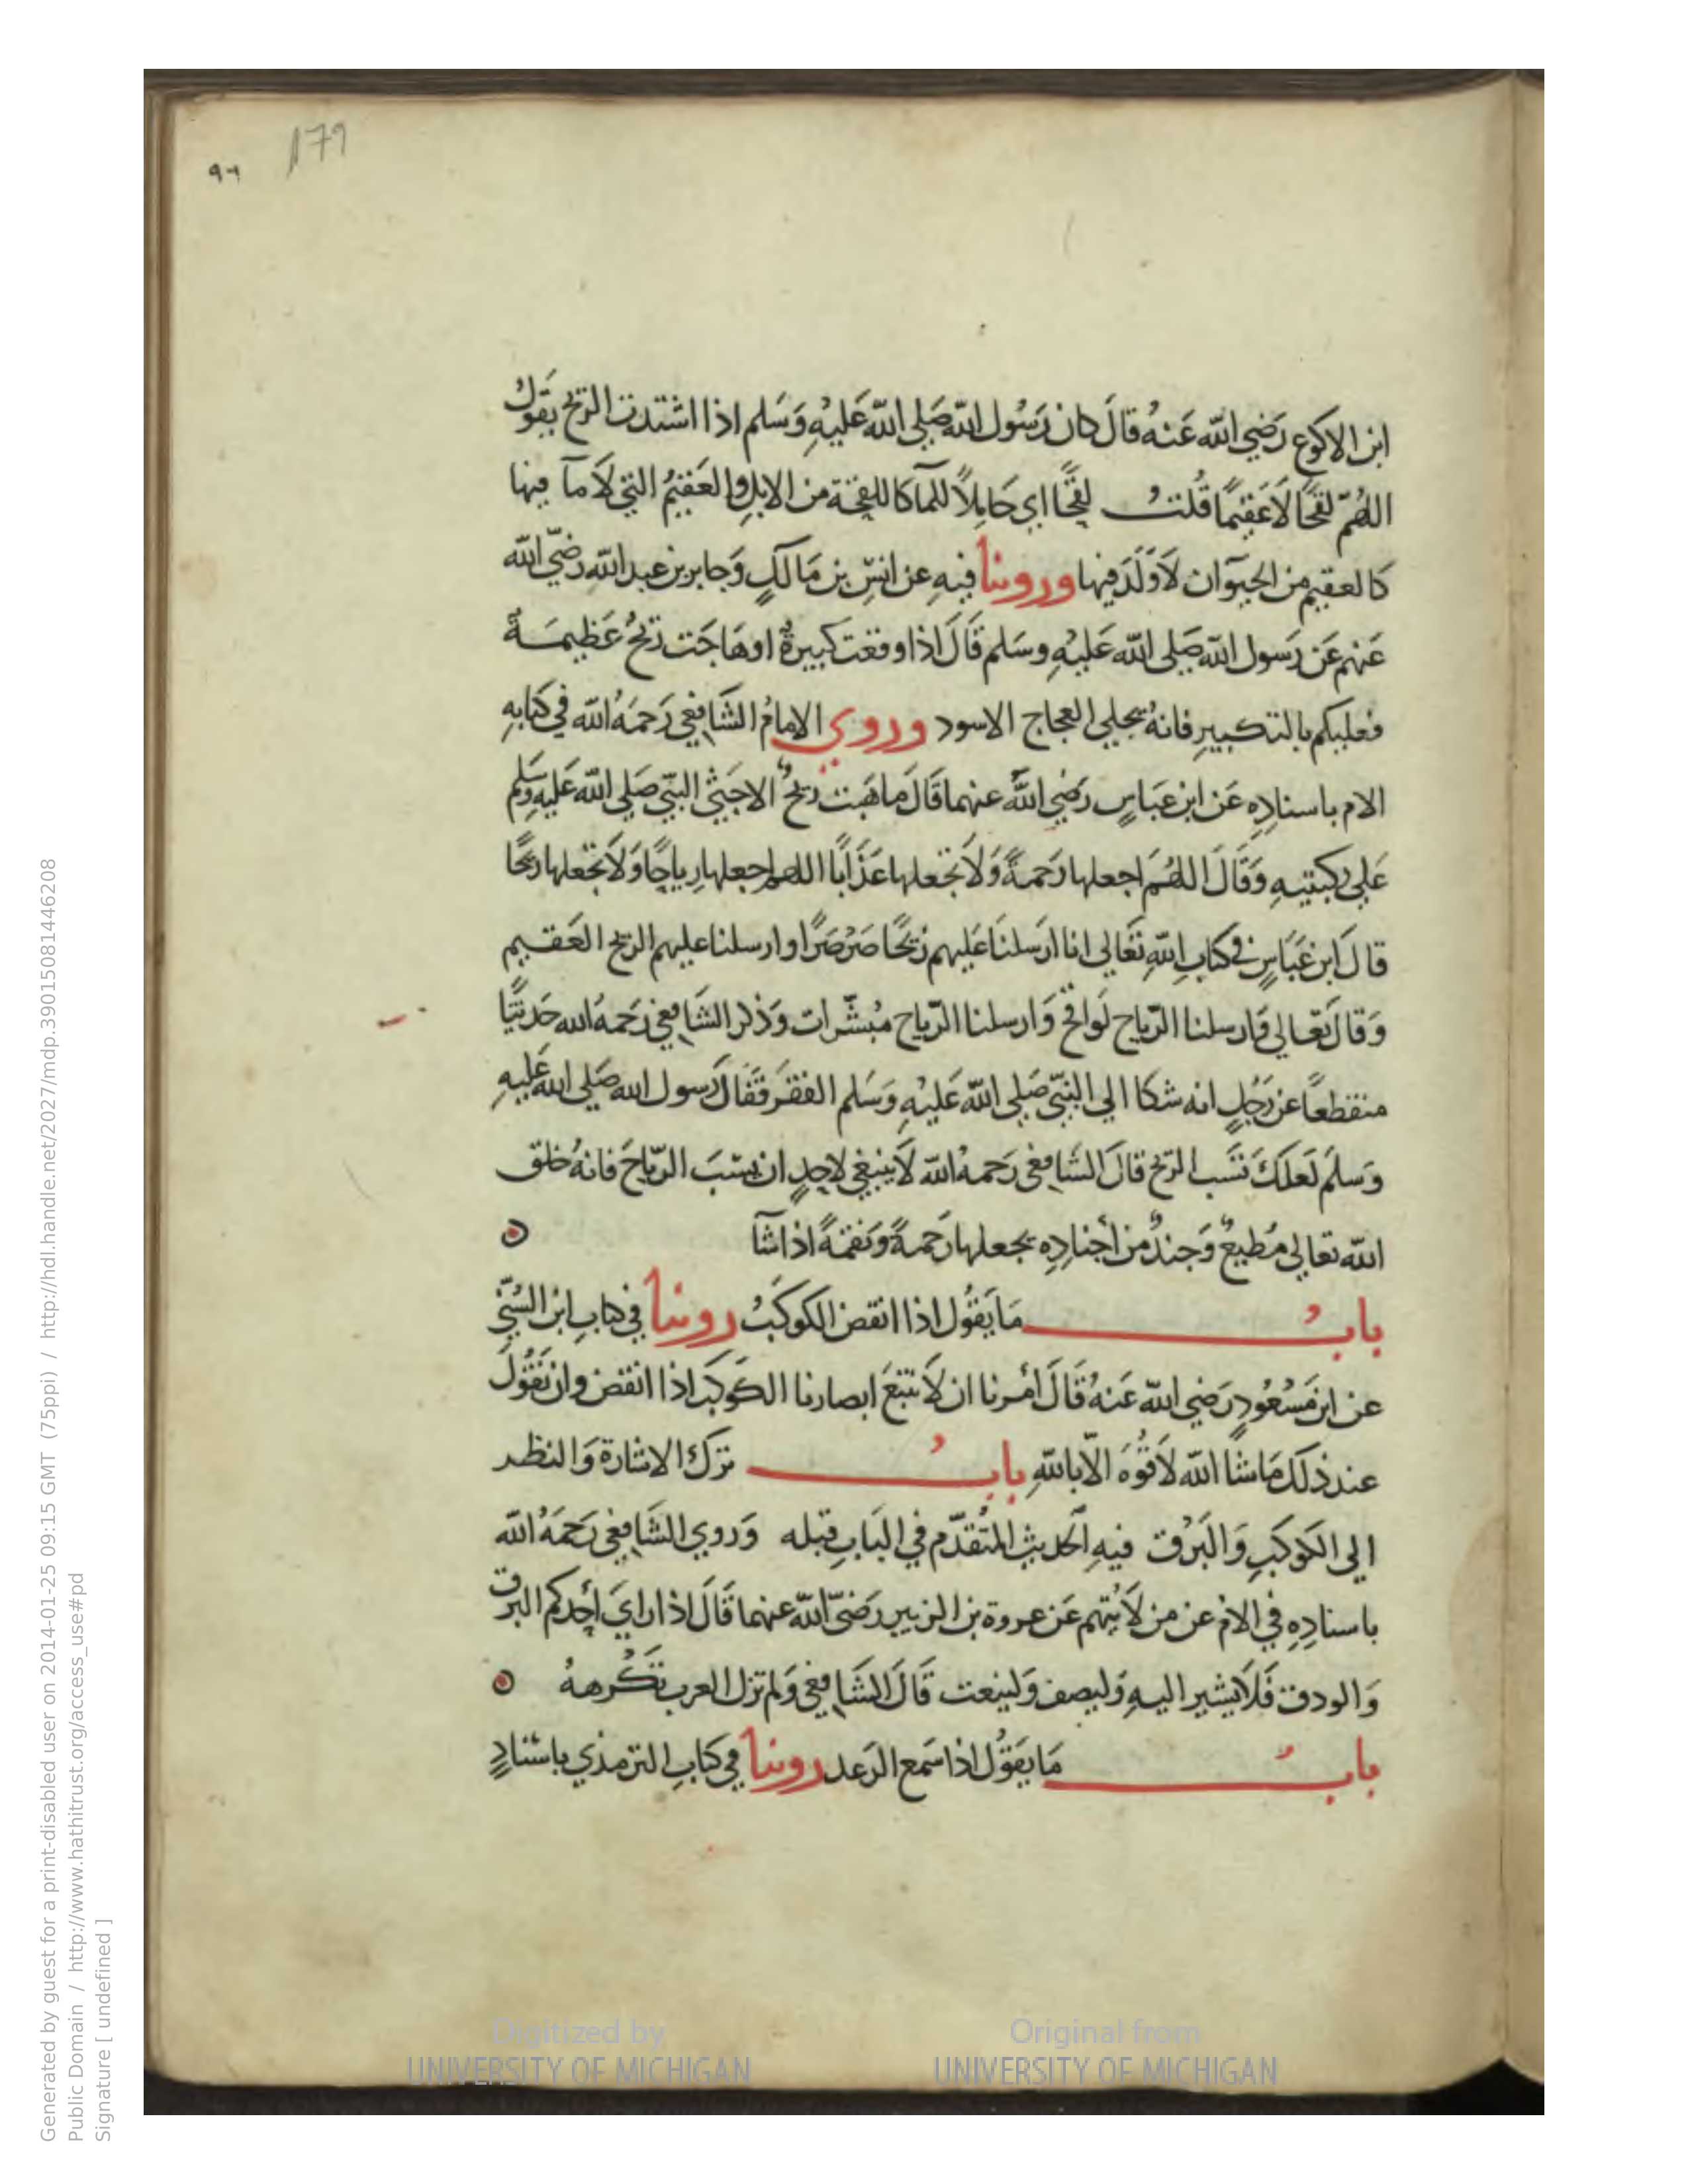 179
٩٦
ابن الاكوع رَضي الله عَنهُ قالَ كان رَسُول الله صَلي الله عَليهِ وَسَلم اذا اشتدت الريح يقول
اللهُمّ لقحًا لاَ عَقيمًا قُلتُ لقحًا اي حَامِلاً للمآ كاللقحة من الابلِ والعَقيمُ التي لاَ مآ فيها
كالعقيم من الحيوَان لاَ وَلَدَ فيها وروينا فيهِ عن انسِ بن مَالكٍ وَجابر بن عبد الله رضيَ الله
عَنهم عَن رَسول الله صَلي الله عَليهِ وسَلم قَالَ اذا وقعَت كبيرةٌ او هَاجَت ريحٌ عَظيمَة
فعليكم بالتكبيرِ فانهُ يجلي العجاج الاسود وروي الامامُ الشَافعي رَحمَهُ الله في كتابهِ
الام باسنادِه عَن ابن عَباسٍ رَضي الله عنهما قَالَ ما هَبت ريحٌ الا جَثي النبي صَلي الله عَليهِ وسَلم
عَلي ركبتيهِ وَقَالَ اللهُمَ اجعلها رَحمةً وَلاَ تجعلها عَذَابًا اللهم اجعلها رِياحًا وَلاَ تجعلها ريحًا
قالَ ابن عَبَاسٍ في كتاب الله تعَالي انا ارسَلنَا عَليهم ريحًا صَرْصَرًا وارسلنا عليهم الريح العَقيم
وَقالَ تعَالي وَارسلنا الرّياح لَواقح وَارسلنا الرّياح مُبشّرات وَذكر الشَافعي رَحمهُ الله حَديثًا
منقطعاً عن رَجُلٍ انه شكا الي النبيّ صَلي الله عَليهِ وَسَلم الفقرَ فقَالَ رَسول الله صَلي الله عَليهِ
وَسلمَ لَعلكَ تَسُب الريح قالَ الشَافعي رَحمهُ الله لاَ ينبغي لاحدٍ ان يسُبَ الرّياحَ فانهُ خلق
الله تعالي مُطيعٌ وَجندٌ من أجنادِه يجعلها رَحمةً وَنقمَةً اذا شآ
بابُ مَا يَقُول اذا انقض الكوكَبُ روينا في كتابِ ابن السُنّي
عن ابن مَسْعُودٍ رَضي الله عَنهُ قَالَ أمرنا ان لاَ نتبعَ ابصارنا الكَوكَبَ اذا انقضَ وان نَقُولَ
عند ذلكَ مَا شا الله لاَ قُوّهَ الاّ باللهِ بابُ تركُ الاشارة وَالنظر
الي الكَوكبِ وَالبَرْق فيهِ الحَديث المتُقدّم في البَابِ قبله وَروي الشَافعي رَحمَهُ الله
باسنادِه في الامْ عن من لاَ يُتهم عَن عروة بن الزبير رَضيَ الله عنهما قَالَ اذا رايَ أحَدكم البرق
وَالودق فَلاَ يشير اليهِ وَليصف وَلينعت قَالَ الشَافعي وَلم تزل العرب تَكْرههُ
بابُ مَا يَقوُل اذا سَمع الرَعد روينا في كتابِ الترمذي باسنادٍ
Digitized by
UNIVERSITY OF MICHIGAN
Original from
UNIVERSITY OF MICHIGAN
Generated by guest for a print-disabled user on 2014-01-25 09:15 GMT (75ppi) / http://hdl.handle.net/2027/mdp.39015081446208
Public Domain / http://www.hathitrust.org/access_use#pd
Signature [ undefined ]